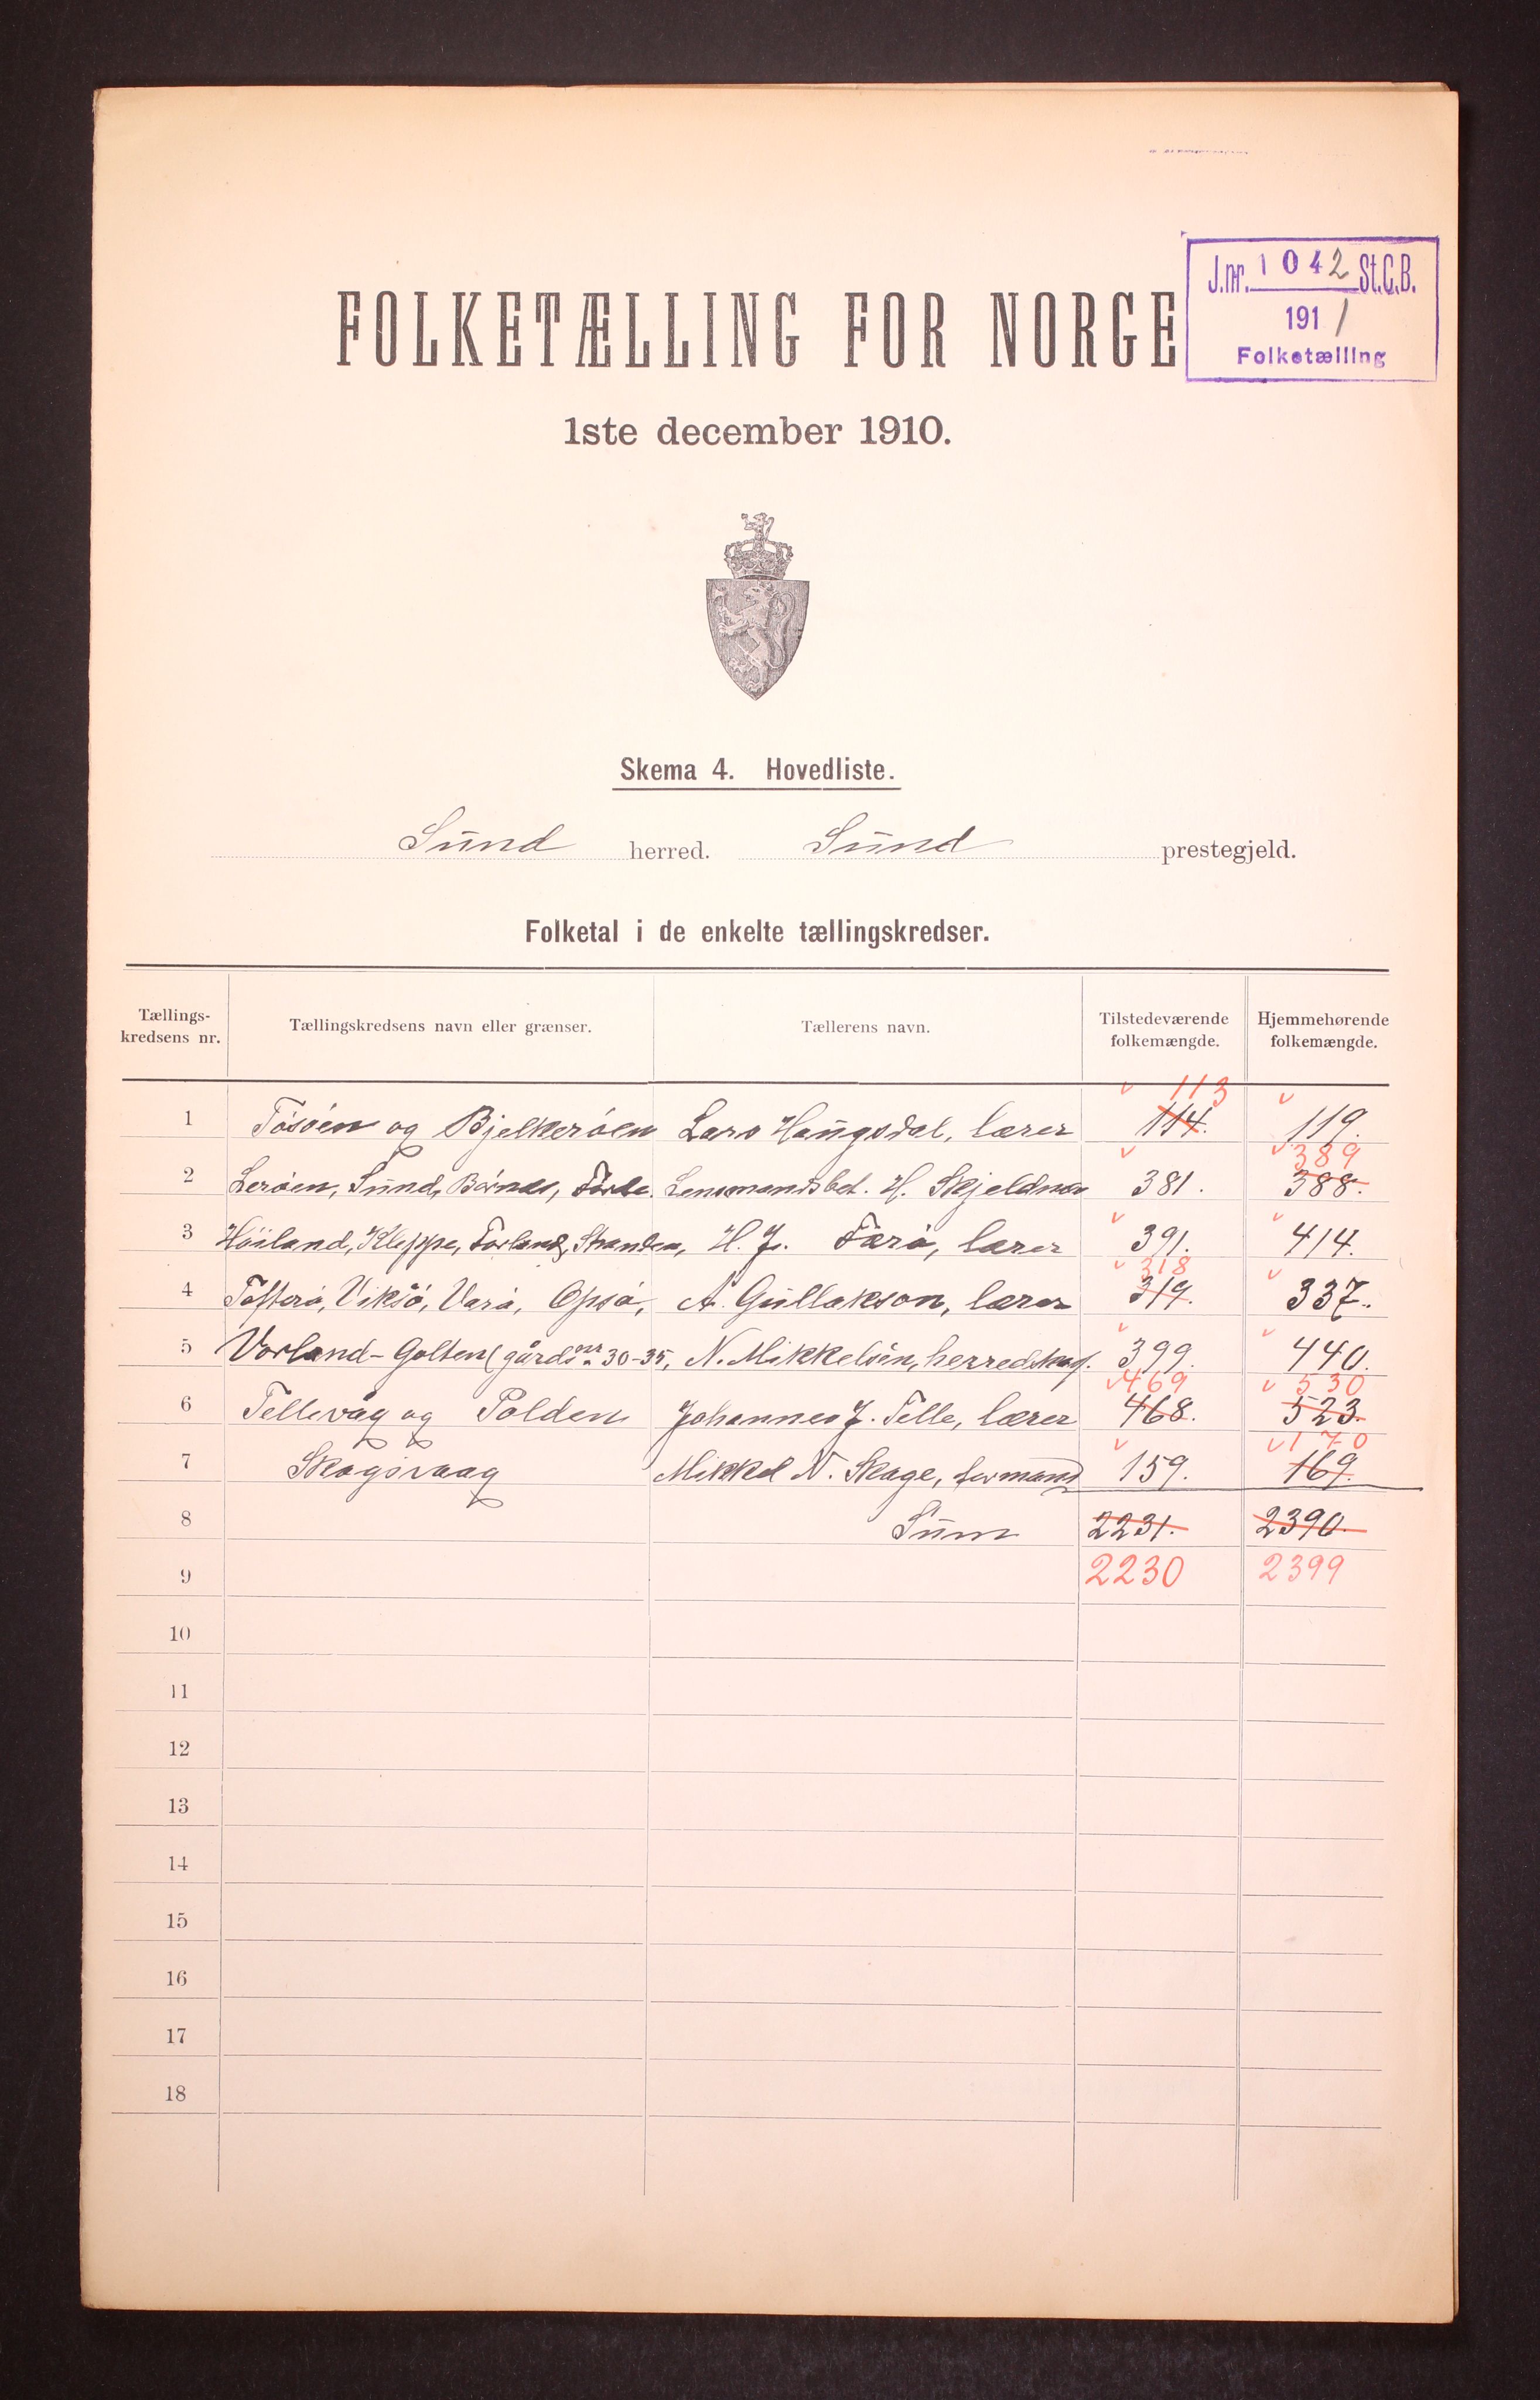 J.nr. 1042 St.C.B.
1911
Folketælling
FOLKETÆLLING FOR NORGE
1ste december 1910.
Skema 4. Hovedliste.
Sund herred. Sund prestegjeld.
Folketal i de enkelte tællingskredser.
Tællings-kredsens nr. Tællingskredsens navn eller grænser. Tællerens navn. Tilstedeværende folkemængde. Hjemmehørende folkemængde.
113
1 Tösöen og Bjelkeröen Lars Haugsdal, lærer 114. 119.
389
2 Leröen, Sund, Börnes, Förde. Lensmandsbet. H. Skjeldnes 381. 388.
3 Höiland, Kleppe, Forland, Stranden, H. J. Færö, lærer 391. 414.
318
4 Tofterö, Viksö, Varö, Opsö, A. Gullakson, lærer 319. 337.
5 Vorland - Golten (gårdsnr 30-35, N. Mikkelsen, herredskas. 399. 440.
469 530
6 Tellevåg og Polden Johannes J. Telle, lærer 468. 523.
170
7 Skogsvaag Mikkel N. Skage, formand 159. 169.
8 Sum 2231. 2390.
9 2230 2399
10
11
12
13
14
15
16
17
18